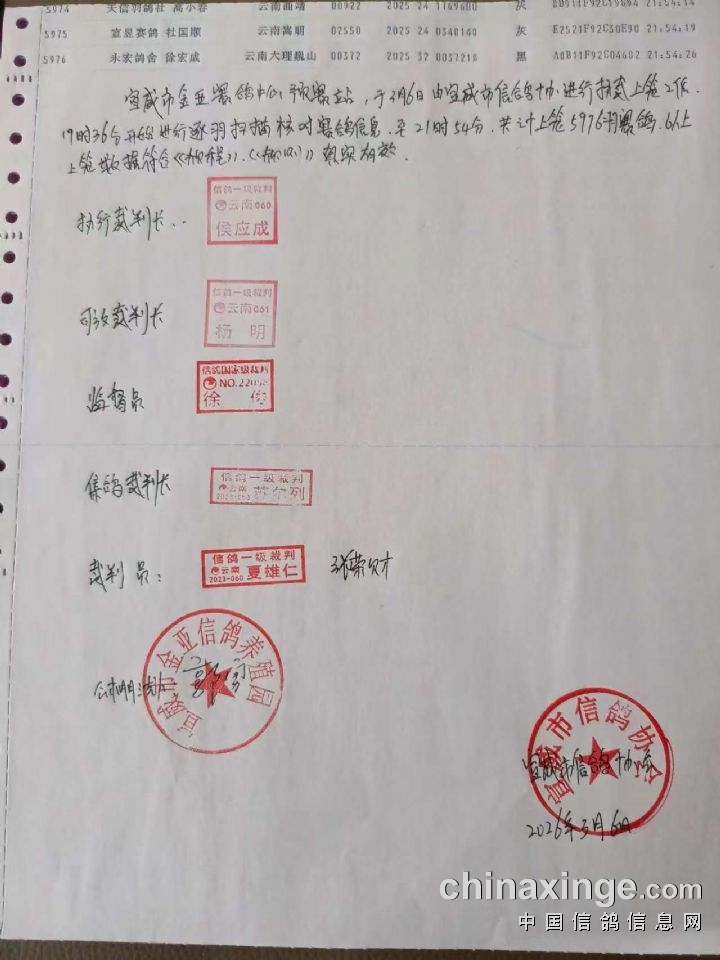 5974 天信羽鸽社 高小春 云南曲靖 00922 2025 24 1169600 灰 21:54:14
5975 富昱赛鸽 杜国顺 云南嵩明 00550 2025 24 0340140 灰 E2521F92C30E90 21:54:19
5976 永宏鸽舍 徐宏成 云南大理巍山 00372 2025 32 0037218 黑 A0B11F92C04602 21:54:26
宣威市金亚赛鸽中心预赛站，于3月6日由宣威市信鸽协进行扫描上笼工作.
19时36分开始进行逐羽扫描核对赛鸽信息，至21时54分，共计上笼5976羽赛鸽.以上
上笼数据符合《》.《》真实有效.
执行裁判长：
信鸽一级裁判
云南060
侯应成
司放裁判长
信鸽一级裁判
云南061
杨明
监督员
信鸽国家级裁判
徐俊
集鸽裁判长
信鸽一级裁判
云南
裁判员：
信鸽一级裁判
云南
2023-060 夏雄仁
张荣
宣威市金亚信鸽养殖园
宣威市信鸽协会
宣威市信鸽协会
2026年3月6日
chinaxinge.com
中国信鸽信息网